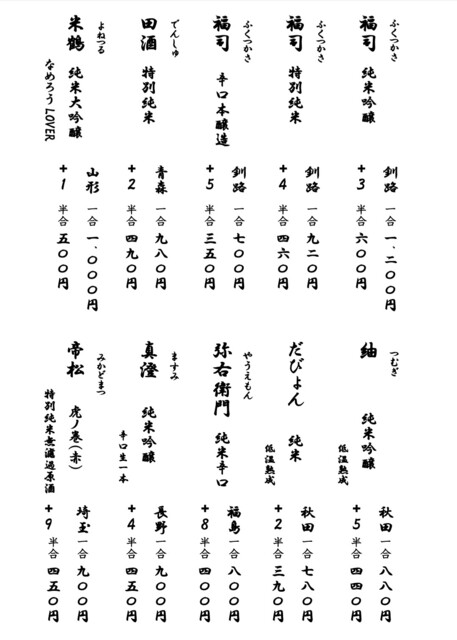 ふくつかさ
福司 純米吟醸
釧路 一合 一、二〇〇円
+3 半合 六〇〇円
ふくつかさ
福司 特別純米
釧路 一合 九二〇円
+4 半合 四六〇円
ふくつかさ
福司 辛口本醸造
釧路 一合 七〇〇円
+5 半合 三五〇円
でんしゅ
田酒 特別純米
青森 一合 九八〇円
+2 半合 四九〇円
よねつる
米鶴 純米大吟醸
なめろうLOVER
山形 一合 一、〇〇〇円
+1 半合 五〇〇円
つむぎ
紬 純米吟醸
低温熟成
秋田 一合 八八〇円
+5 半合 四四〇円
だびょん 純米
低温熟成
秋田 一合 七八〇円
+2 半合 三九〇円
やうえもん
弥右衛門 純米辛口
福島 一合 八〇〇円
+8 半合 四〇〇円
ますみ
真澄 純米吟醸
辛口生一本
長野 一合 九〇〇円
+4 半合 四五〇円
みかどまつ
帝松 虎ノ巻(赤)
特別純米無濾過原酒
埼玉 一合 九〇〇円
+9 半合 四五〇円